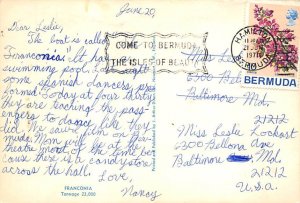 June 20,
Dear Leslie,
The boat is called
Franconia. It has
swimming pool. Last night
some Spanish dancers per-
formed. Today at four thirty
they are teaching the pass-
engers to dance like they
did. We eat from
made. Mom will be at the
theatre most of the time be-
cause there is a candy store
across the hall. Love,
Nancy
FRANCONIA
Tonnage 22,000
COME TO BERMUDA
THE ISLES OF BEAUTY
HAMILTON
1970
BERMUDA
BERMUDA
Miss Leslie
6300 Bellona Ave
Baltimore Md.
21212
Miss Leslie Lockart
6300 Bellona Ave
Baltimore Md.
21212
U.S.A.